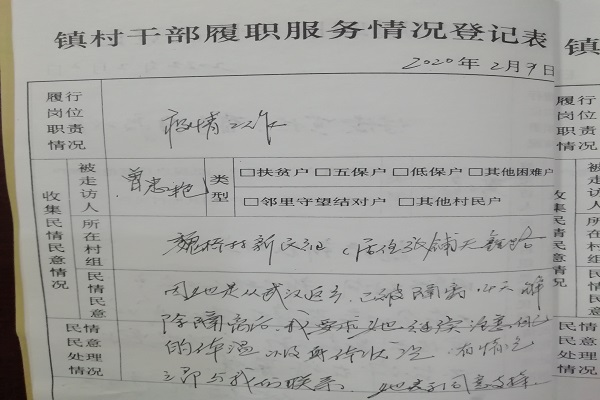 镇村干部履职服务情况登记表
2020年2月9日
履行岗位职责情况
疫情工作
收集民情民意情况
被走访人
曾忠艳
类型
□扶贫户 □五保户 □低保户 □其他困难户
□邻里守望结对户 □其他村民户
所在村组
新民组
民情民意
因她是从武汉返乡,已被隔离,今天解
民情民意处理情况
除隔离后,我要求她继续注意她
的体温以及身体状况,有情况
立即与我们联系。她表示同意支持。
镇
履行岗位职责情况
收集民情民意情况
被走访人
所在村组
民情民意
民情民意处理情况